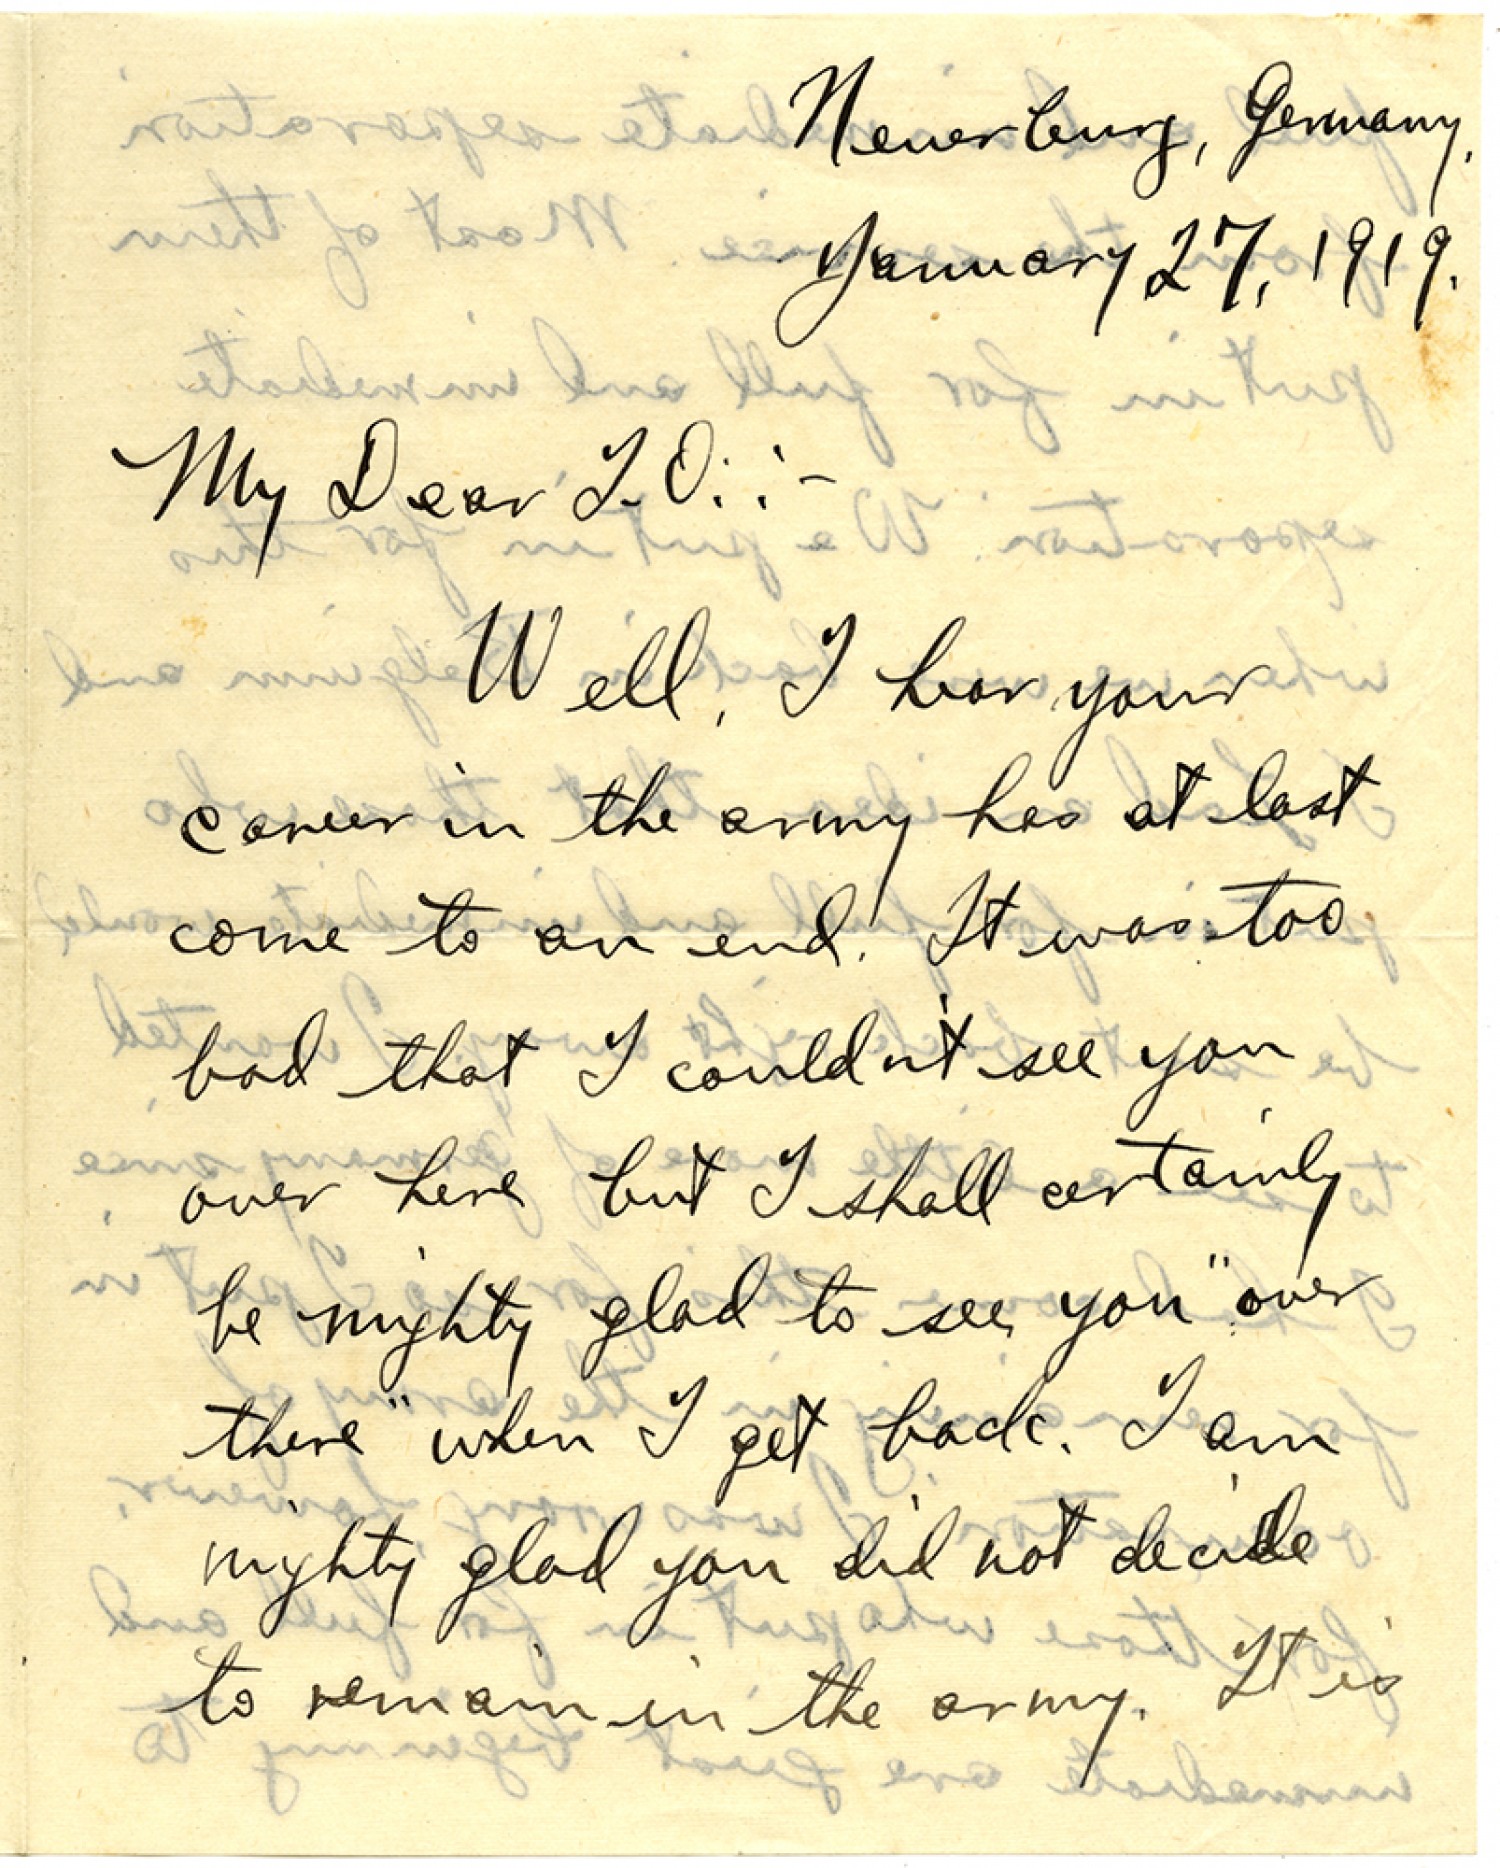 Neuerburg, Germany,
January 27, 1919.
My Dear T.O.::-
Well, I hear your
career in the army has at last
come to an end. It was too
bad that I couldn't see you
over here but I shall certainly
be mighty glad to see you "over
there" when I get back. I am
mighty glad you did not decide
to remain in the army. It is